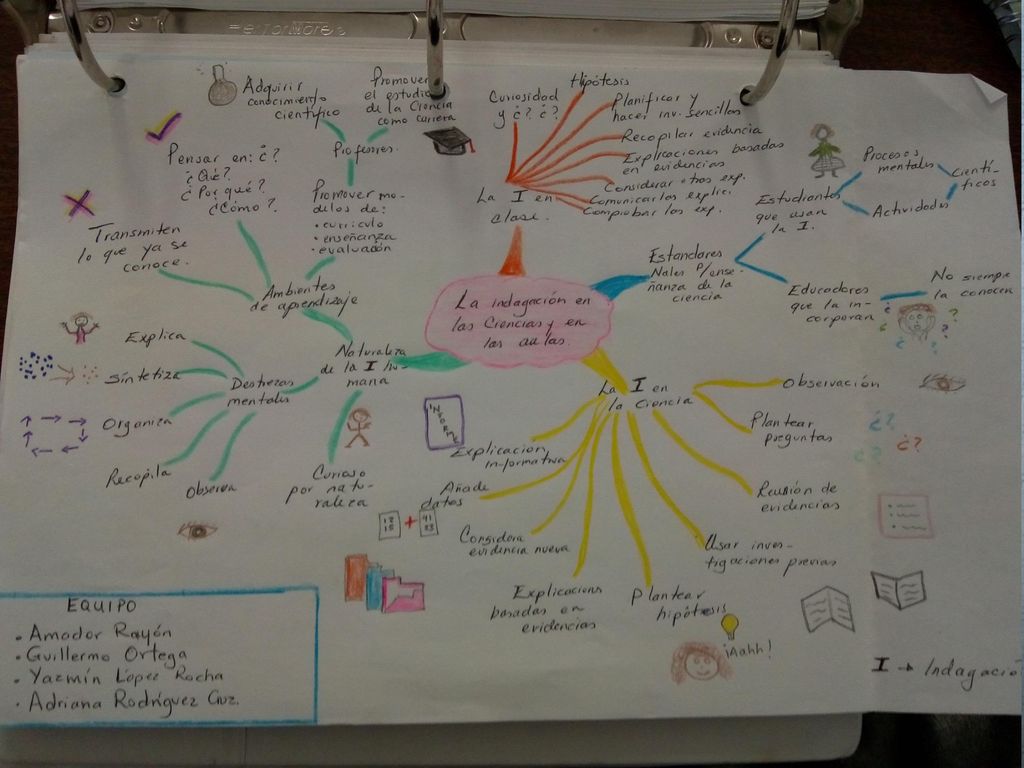 La indagación en
las Ciencias y en
las aulas.
La I en
clase.
Curiosidad
y ¿? ¿?
Hipótesis
Planificar y
hacer inv. sencillas
Recopilar evidencia
Explicaciones basadas
en evidencias
Considerar otras exp.
Comunicar las explic.
Comprobar las exp.
Estandares
Nales P/ense-
ñanza de la
ciencia
Estudiantes
que usan
la I.
Procesos
mentales
Actividades
Científi-
ficos
Educadores
que la in-
corporan
No siempre
la conocen
¿ ? ¿ ? ¿ ?
La I en
la Ciencia
Observación
Plantear
preguntas
¿?
¿?
¿?
Reunión de
evidencias
Usar inves-
tigaciones previas
Plantear
hipótesis
¡Aahh!
Explicacions
basadas en
evidencias
Considera
evidencia nueva
Añade
datos
12
15
+
41
23
Explicación
informativa
INFORME
Naturaleza
de la I hu-
mana
Curioso
por natu-
raleza
Destrezas
mentales
Explica
Sintetiza
Organiza
Recopila
Observa
Ambientes
de aprendizaje
Transmiten
lo que ya se
conoce.
Pensar en: ¿?
¿Qué?
¿Por qué?
¿Cómo?
Promover mo-
delos de:
• curriculo
• enseñanza
• evaluación
Profesores.
Adquirir
conocimiento
científico
Promover
el estudio
de la Ciencia
como carrera
EQUIPO
• Amador Rayón
• Guillermo Ortega
• Yazmín López Rocha
• Adriana Rodríguez Cruz.
I → Indagació